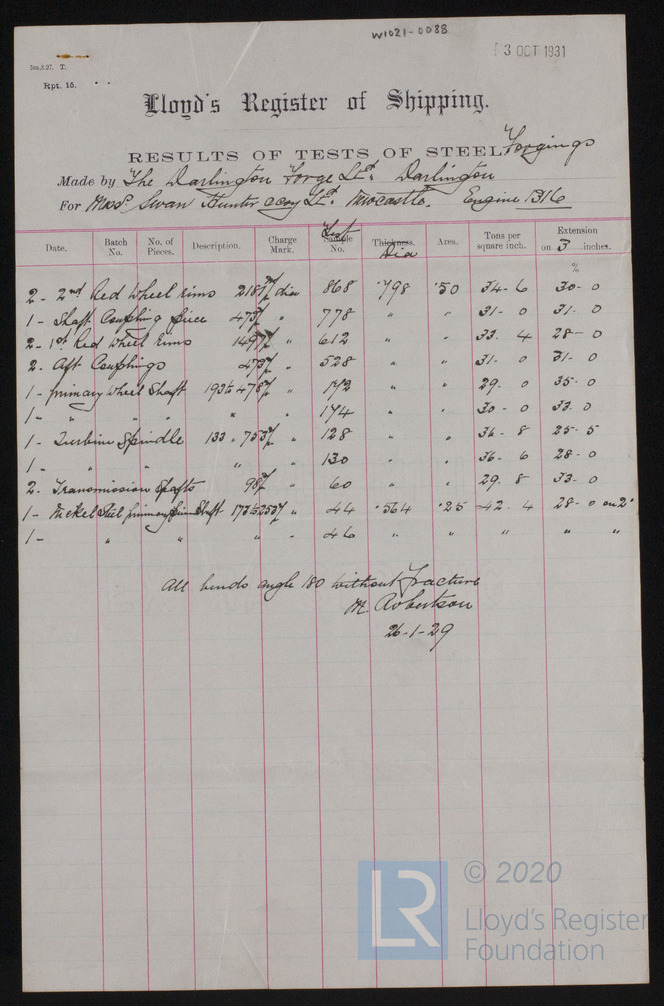 W1021-0088
13 OCT 1931
T.
Rpt. 15.
Lloyd's Register of Shipping.
RESULTS OF TESTS OF STEEL Forgings
Made by The Darlington Forge Ltd. Darlington
For Messrs Swan Hunter & Coy Ltd. Engine 1316
Date. Batch No. No. of Pieces. Description. Charge Mark. Test Sample No. Thickness. Dia Area. Tons per square inch. Extension on 3 inches.
%
2 - 2nd Red Wheel rims dia 868 .798 .50 34-6 30-0
1 - Shaft Coupling piece " 778 " " 31-0 31-0
2 - 1st Red Wheel rims " 612 " " 33.4 28-0
2. Aft Couplings " 528 " " 31.0 31-0
1 - primary Wheel Shaft " 172 " " 29.0 35-0
1 - " " " " " 174 " " 30-0 33.0
1 - Turbine Spindle 133 " " 128 " " 36-8 25-5
1 - " " " " 130 " " 36-6 28-0
2. Transmission Shafts " 60 " " 29.8 33-0
1 - Nickel Steel primary Shaft " 44 .564 .25 42.4 28-0 on 2"
1 - " " " " 46 " " " " "
All bends angle 180 without fracture
M. Robertson
26-1-29
© 2020
LR
Lloyd's Register
Foundation